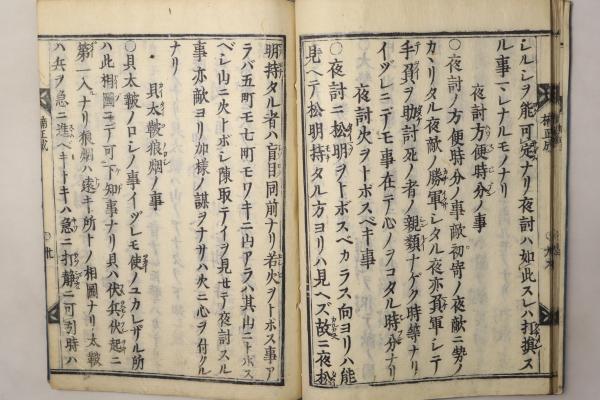 シルシヲ能可定ナリ夜討ハ如此スレハ打損ス
ル事マレナルモノナリ
夜討方便時分ノ事
○夜討ノ方便時分ノ事敵初寄ノ夜敵ニ勢ノ
カヽリタル夜敵ノ勝軍シタル夜亦負軍シテ
手負ヲ助討死ノ者ノ親類ナゲク時等ナリ
イヅレニテモ事在テ心ノヲコタル時分ナリ
夜討火ヲトボスベキ事
○夜討ニ松明ヲトボスベカラス向ヨリハ能
見ヘテ松明持タル方ヨリハ見ヘズ故ニ夜松
明持タル者ハ盲目同前ナリ若火ヲトボス事ア
ラバ五町モ七町モワキニ山アラハ其山ニトボス
ベシ山ニ火トボシ陳取テイヲ見せテ夜討スル
事亦敵ヨリ加様ノ謀ヲナサハ火ニ心ヲ付クル
ナリ
貝太鞁狼烟ノ事
○貝太鞁ノロシノ事イヅレモ使ノユカレザル所
ハ此相圖ニテ可下知事ナリ貝ハ伏兵伏起ニ
第一入ナリ狼烟ハ遠キ所トノ相圖ナリ太鞁
ハ兵ヲ急ニ進ベキトキハ急ニ打静ニ可引時ハ
楠正成
廿